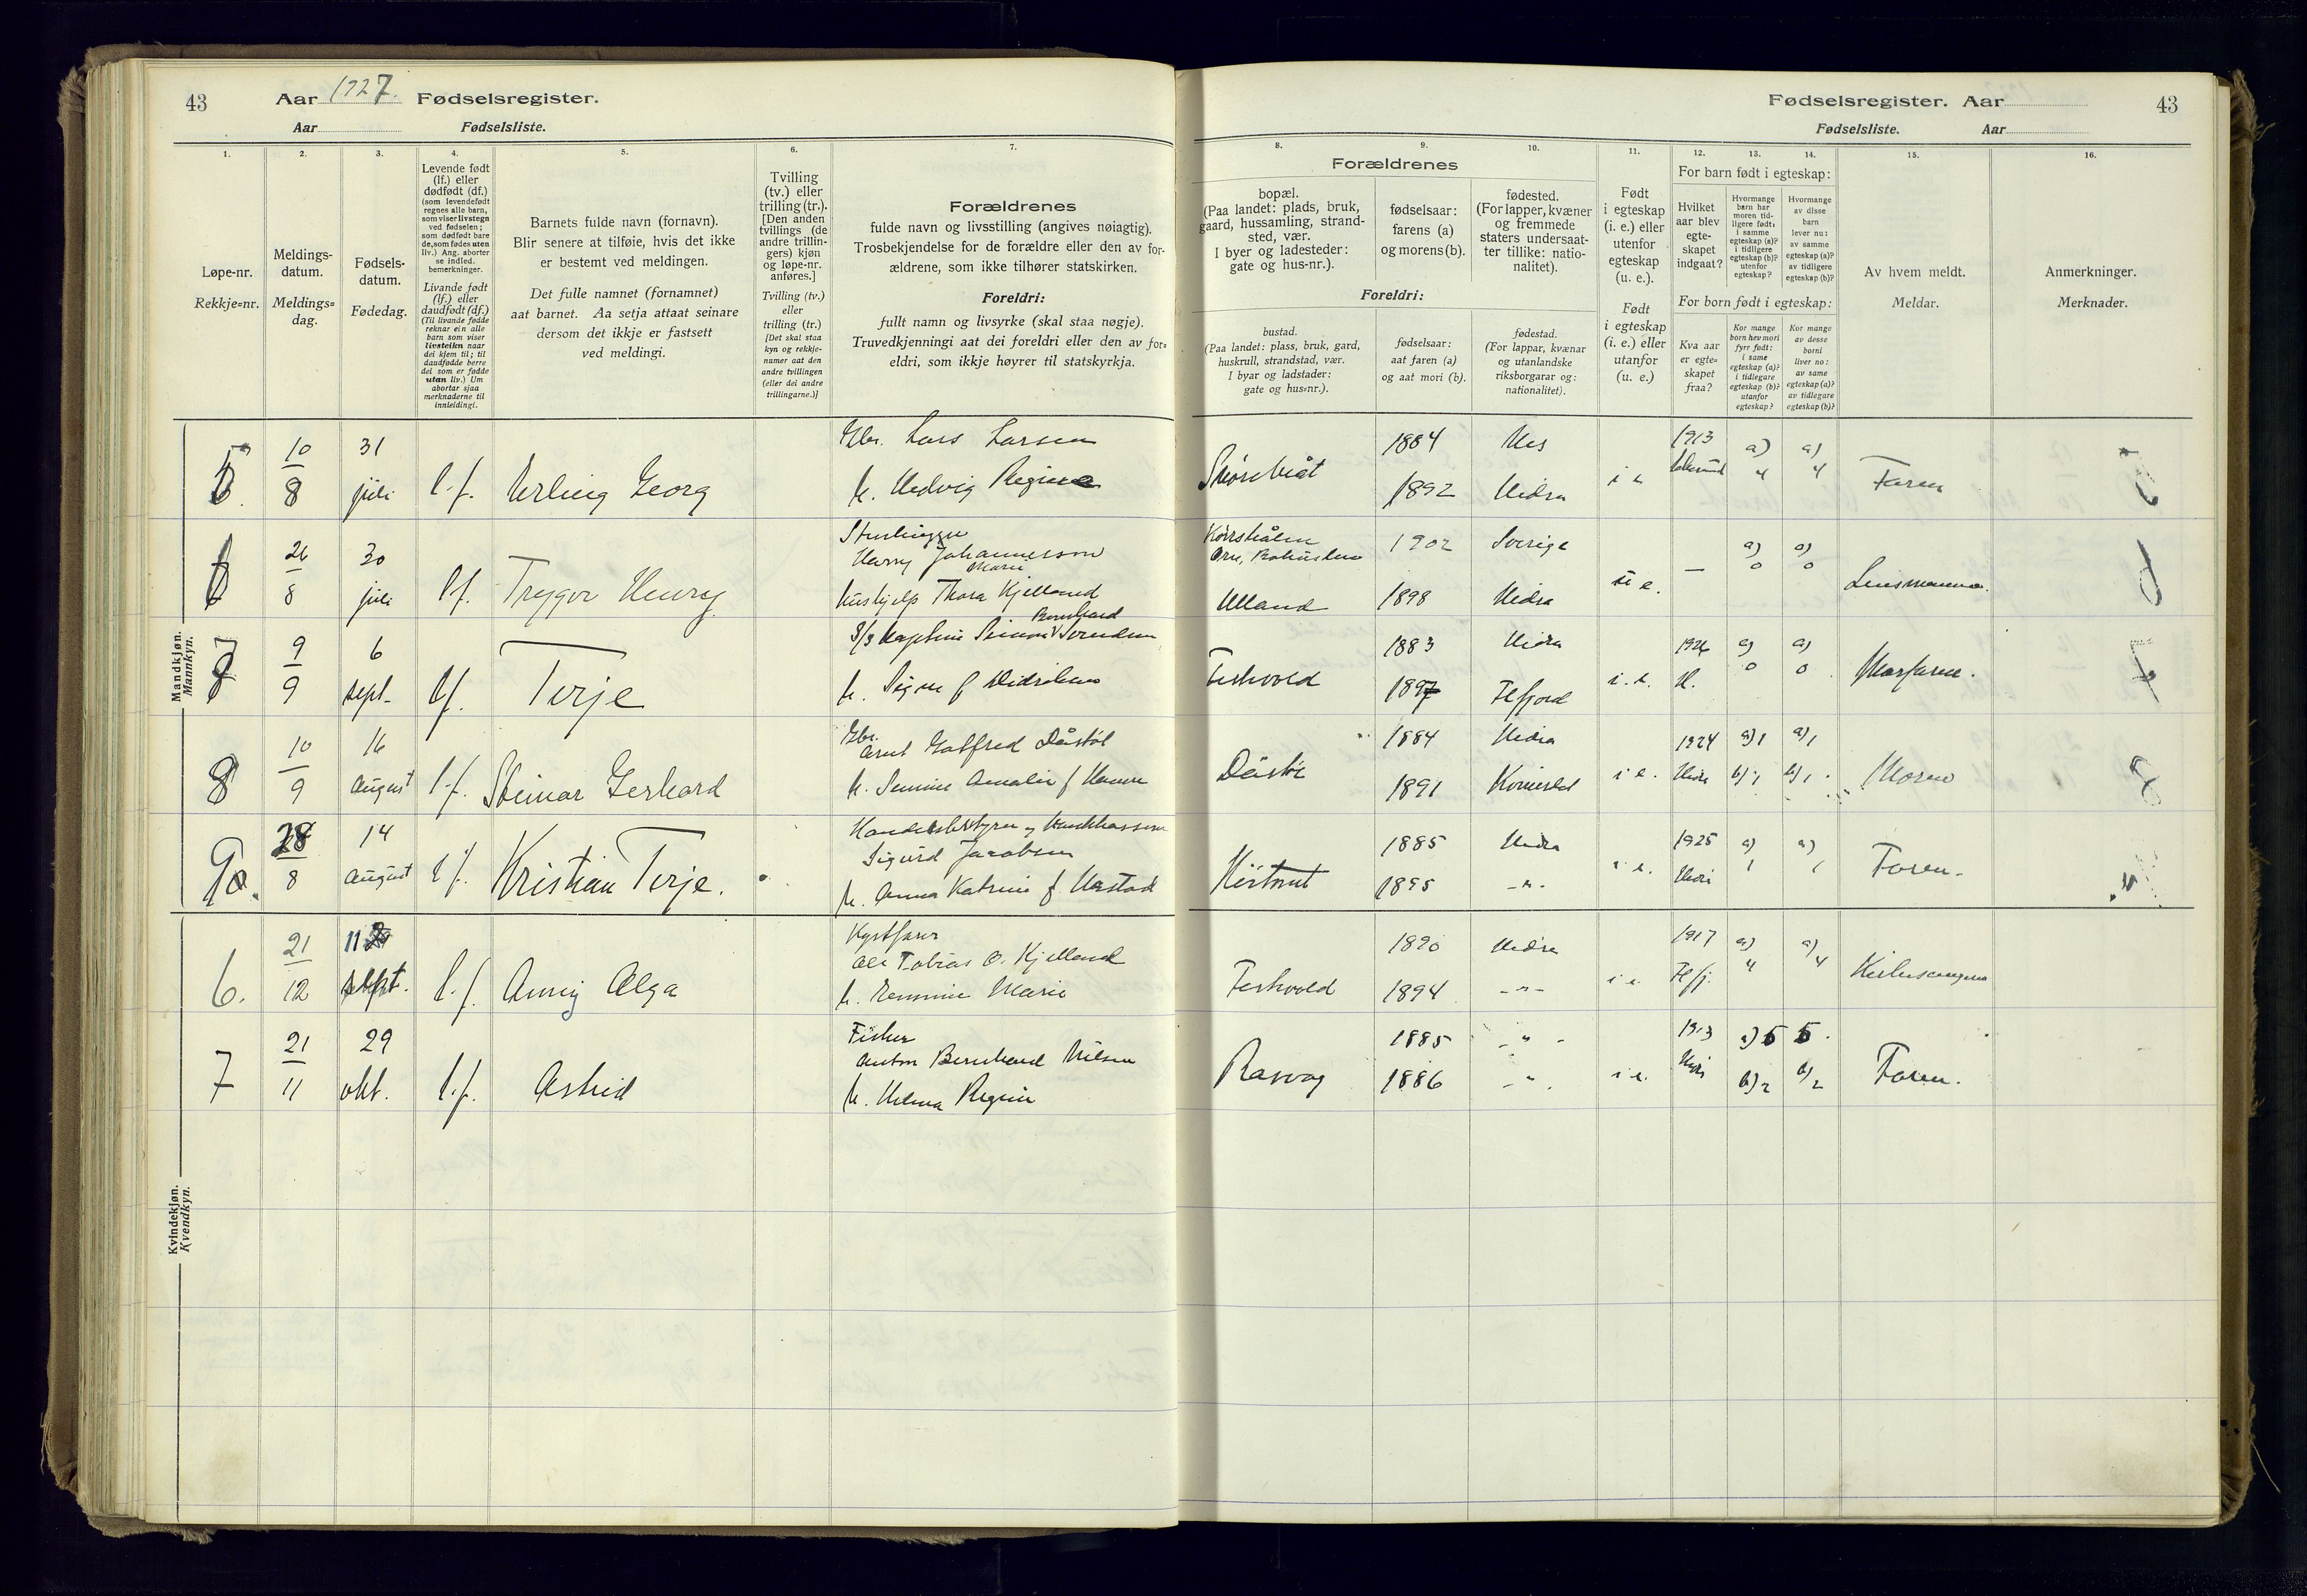 43
Aar 1927. Fødselsregister.
Aar Fødselsliste.
Fødselsregister. Aar
43
Fødselsliste. Aar
1.
Løpe-nr.
Rekkje=nr.
2.
Meldings-
datum.
Meldings=
dag.
3.
Fødsels-
datum.
Fødedag.
4.
Levende født
(lf.) eller
dødfødt (df.)
(som levendefødt
regnes alle barn,
som viser livstegn
ved fødselen;
som dødfødt bare
de, som fødes uten
liv.) Ang. aborter
se indled.
bemerkninger.
Livande født
(lf.) eller
daudfødt (df.)
(Til livande fødde
reknar ein alle
barn som viser
livsteikn naar
dei kjem til; til
daudfødde berre
dei som er fødde
utan liv.) Um
abortar sjaa
merknaderne til
innleidingi.
5.
Barnets fulde navn (fornavn).
Blir senere at tilføie, hvis det ikke
er bestemt ved meldingen.
Det fulle namnet (fornamnet)
aat barnet. Aa setja attaat seinare
dersom det ikkje er fastsett
ved meldingi.
6.
Tvilling
(tv.) eller
trilling (tr.).
[Den anden
tvillings (de
andre trillin-
gers) kjøn
og løpe-nr.
anføres.]
Tvilling (tv.)
eller
trilling (tr.)
[Det skal staa
kyn og rekkje-
numer aat den
andre tvillingen
(eller dei andre
trillingarne.)]
7.
Forældrenes
fulde navn og livsstilling (angives nøiagtig).
Trosbekjendelse for de forældre eller den av for-
ældrene, som ikke tilhører statskirken.
Foreldri:
fullt namn og livsyrke (skal staa nøgje).
Truvedkjenningi aat dei foreldri eller den av for=
eldri, som ikkje høyrer til statskyrkja.
Forældrenes
8.
bopæl.
(Paa landet: plads, bruk,
gaard, hussamling, strand-
sted, vær.
I byer og ladesteder:
gate og hus-nr.).
9.
fødselsaar:
farens (a)
og morens (b).
10.
fødested.
(For lapper, kvæner
og fremmede
staters undersaat-
ter tillike: natio-
nalitet).
Foreldri:
bustad.
(Paa landet: plass, bruk, gard,
huskrull, strandstad, vær.
I byar og ladstader:
gate og hus=nr.).
fødselsaar:
aat faren (a)
og aat mori (b).
fødestad.
(For lappar, kvænar
og utanlandske
riksborgarar og:
nationalitet).
11.
Født
i egteskap
(i. e.) eller
utenfor
egteskap
(u. e.).
Født
i egteskap
(i. e.) eller
utanfor
(u. e.)
For barn født i egteskap:
12.
Hvilket
aar blev
egte-
skapet
indgaat?
13.
Hvormange
barn har
moren tid-
ligere født:
i samme
egteskap (a)?
i tidligere
egteskap (b)?
utenfor
egteskap?
14.
Hvormange
av disse
barn
lever nu:
av samme
egteskap (a)?
av tidligere
egteskap (b)?
For born født i egteskap:
Kva aar
er egte=
skapet
fraa?
Kor mange
born hev mori
fyrr født:
i same
egteskap (a)?
i tidlegare
egteskap (b)?
utanfor
egteskap?
Kor mange
av desse
borni
liver no:
av same
egteskap (a)?
av tidlegare
egteskap (b)?
15.
Av hvem meldt.
Meldar.
16.
Anmerkninger.
Merknader.
Mandkjøn.
Mannkyn.
5 10/8 31 juli l.f. Erling Georg
Gbr. Lars Larsen
h. Hedvig Regine
1884 Nes
1892 Hidra
i e 1913 a) 4 a) 4 Faren
6 26/8 30 juli l.f. Trygve Henry
Harry Johannesson
Hushjelp Thora Marie Kjelland
1902 Sverige
1898 Hidra
u e. — a) 0 a) 0 Lensmannen
7 9/9 6 sept. l.f. Terje
Signe f Didriksen
Feskvold 1883 Hidra
1897 Flfjord
i. e. 1926 H. a) 0 a) 0 Morfaren.
7
8 10/9 16 august l.f. Steinar Gerhard
Gbr.
Arnt Gotfred Dåstøl
Dåstøl 1884 Hidra
1891 Kvinesdal
i e. 1924 Hidra a) 1 b) 1 a) 1 b) 1. Moren
8
9. 28/8 14 august l.f. Kristian Terje.
Sigurd Jacobsen
h. Anna Katrine f Hastad
1885 Hidra
1895 -"-
i e. 1925 Hidra a) 1 a) 1 Faren.
Kvindekjøn.
Kvendkyn.
6. 21/12 11 sept. l.f. Anny Olga
Kystfarer
Ole Tobias O. Kjelland
h. Remmine Marie
Feskvold 1890 Hidra
1894 -"-
i e. 1917 Flfj. a) 4 a) 4
7 21/11 29 okt. l.f. Astrid
Fisker
Anton Bernhard Nilsen
h. Helma Regine
Rasvåg 1885 -"-
1886 -"-
i e. 1913 Hidra a) 5 5.
b) 2 b) 2 Faren.